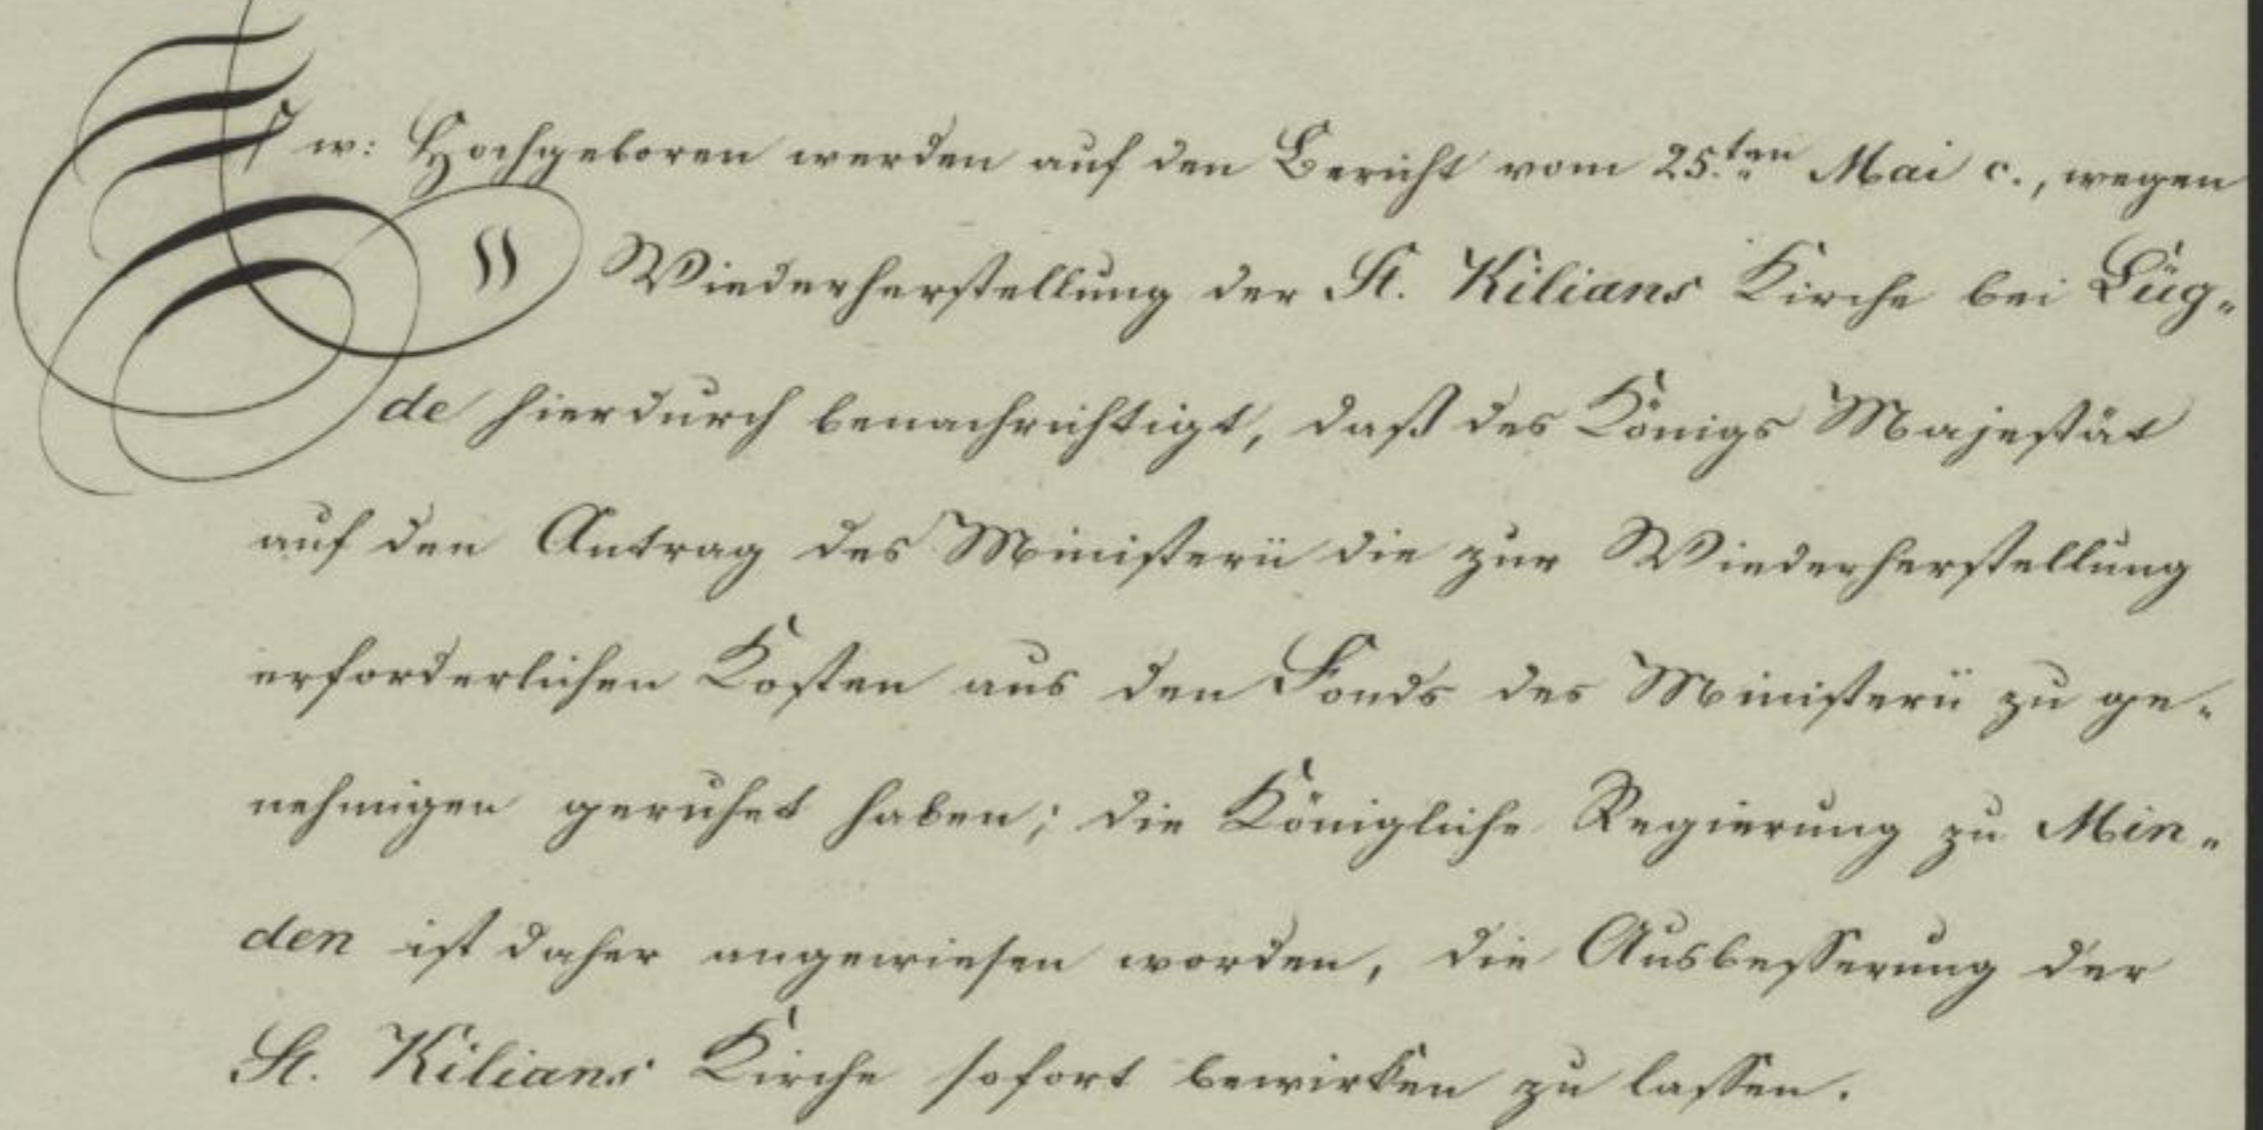 Ew: Hochgeboren werden auf den Bericht vom 25.ten Mai c., wegen
Wiederherstellung der St. Kilians Kirche bei Lüg-
de hierdurch benachrichtigt, daß des Königs Majestät
auf den Antrag des Ministerii die zur Wiederherstellung
erforderlichen Kosten aus den Fonds des Ministerii zu ge-
nehmigen geruhet haben; die Königliche Regierung zu Min-
den ist daher angewiesen worden, die Ausbesserung der
St. Kilians Kirche sofort bewirken zu lassen.